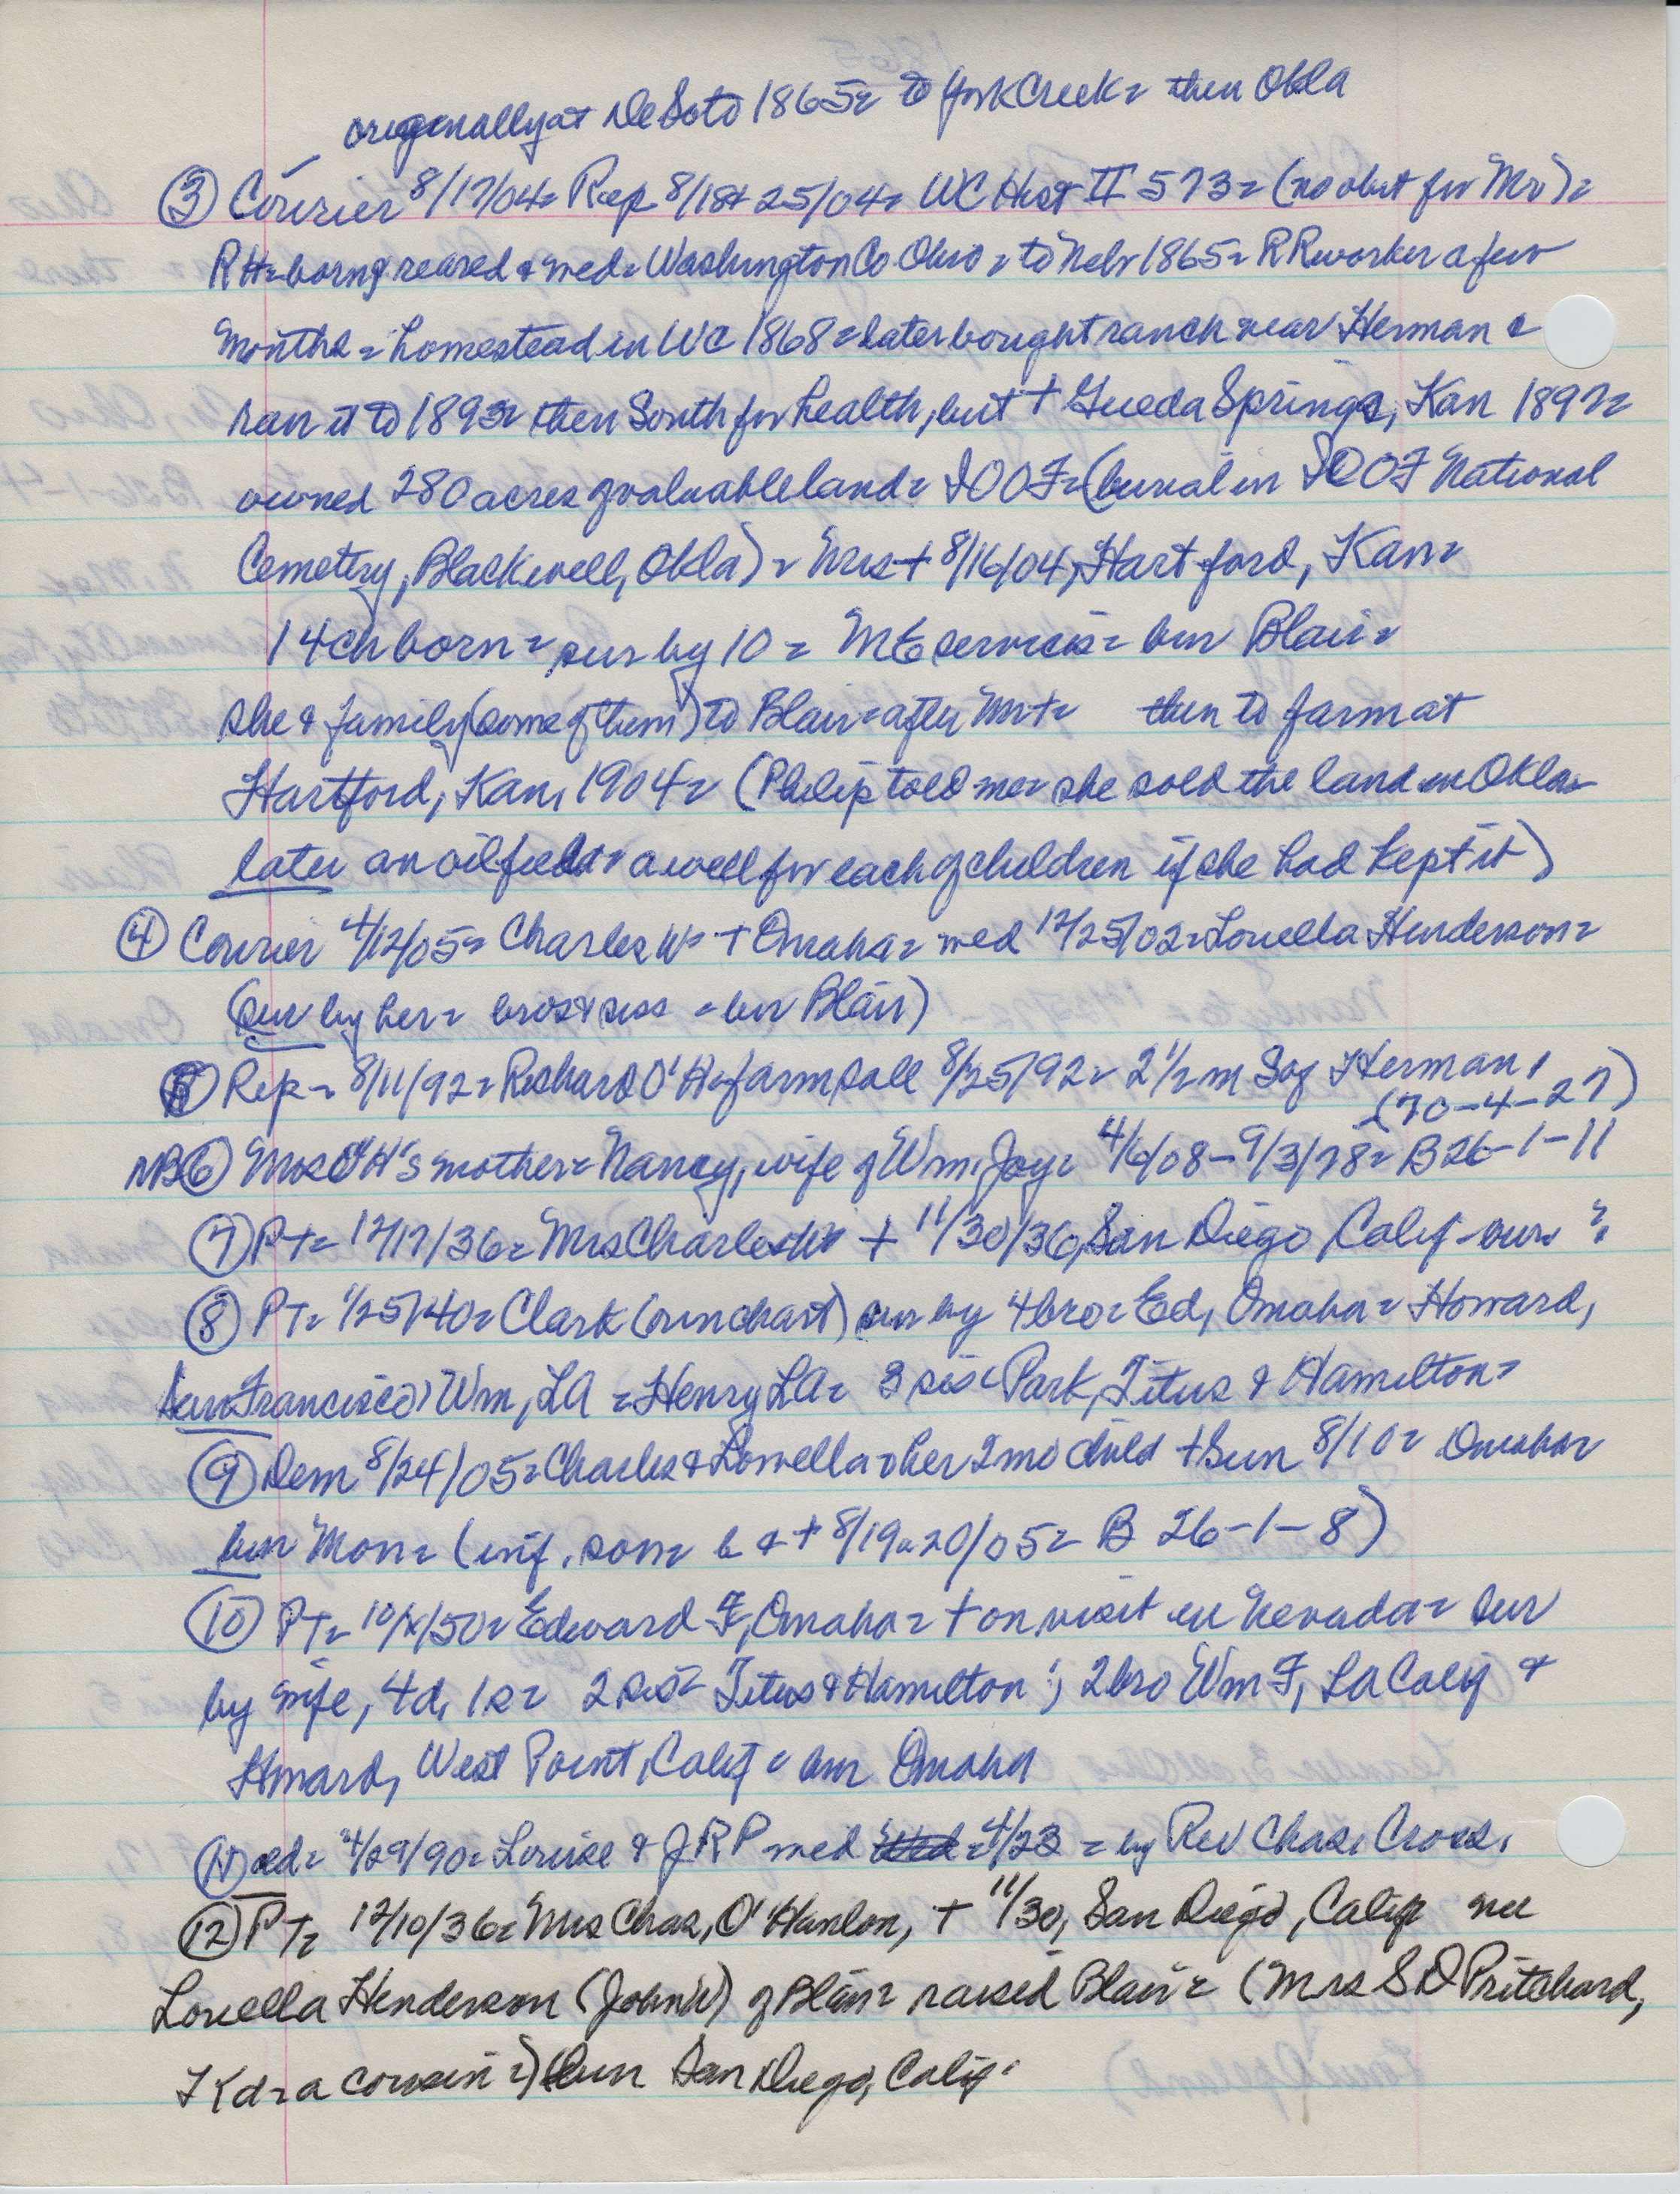 originally at DeSoto 1865= to York Creek= then Okla
③ Courier 8/17/04= Rep 8/18& 25/04= WC Hist II 573= (no obit for Mr)=
RH=born & reared & med= Washington Co Ohio = to Nebr 1865= RR worker a few
months = homestead in WC 1868= later bought ranch near Herman &
ran it to 1893= then South for health, but + Gueda Springs, Kan 1897=
owned 280 acres of valuable land= IOOF= (burial in IOOF National
Cemetery, Blackwell, Okla) = Mrs + 8/16/04, Hartford, Kan=
14 ch born= sur by 10 = ME services= bur Blair=
she & family (some of them) to Blair= after Mr += then to farm at
Hartford, Kan, 1904= (Philip told me= she sold the land in Okla=
later an oilfield= a well for each of children if she had kept it)
④ Courier 4/12/05= Charles W + Omaha= med 12/25/02= Louella Henderson=
(sur by her= bros & siss = bur Blair)
⑤ Rep= 8/11/92= Richard O'H= farm sale 8/25/92= 2 1/2 m S of Herman,
(70-4-27)
NB⑥ Mrs O'H's mother= Nancy, wife of Wm. Joy= 4/6/08-9/3/78= B26-1-11
⑦ PT= 12/17/36= Mrs Charles W + 11/30/36, San Diego, Calif- bur. ?
⑧ PT= 1/25/40= Clark (on chart) sur by 4 bro= Ed, Omaha= Howard,
San Francisco) Wm, LA = Henry LA= 3 sis= Park, Titus & Hamilton=
⑨ Dem 8/24/05= Charles & Louella= her 2 mo child + Sun 8/10= Omaha=
bur Mon= (inf. son= b & + 8/19 20/05= B 26-1-8)
⑩ PT= 10/ /50= Edward F, Omaha= + on visit in Nevada= sur
by wife, 4d, 1s= 2 sis= Titus & Hamilton; 2 bro Wm F, LA Calif &
Howard, West Point, Calif= bur Omaha
⑪ = 4/29/90= Louise & JRP med = 4/23 = by Rev Chas. Cross.
⑫ PT= 12/10/36= Mrs Chas, O'Hanlon, + 11/30, San Diego, Calif nee
Louella Henderson (John W) of Blair= raised Blair= (Mrs S D Pritchard,
Kd= a cousin=) bur San Diego, Calif.